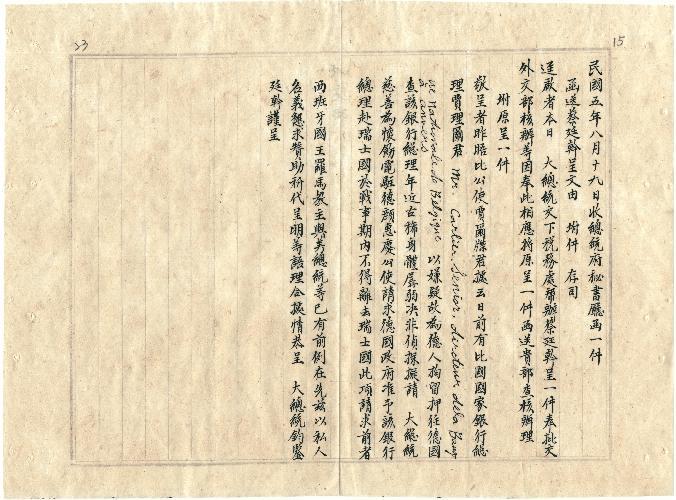 15
民國五年八月十九日收總統府秘書廳函一件
函送蔡廷幹呈文由 附件 存司
逕啟者本日 大總統交下稅務處幫辦蔡廷幹呈一件奉批交
外交部核辦等因奉此相應將原呈一件函送貴部查核辦理
附原呈一件
敬呈者昨晤比公使賈爾牒君據云日前有比國國家銀行總
理賈理爾君 Mr. Carlier, Senior, directeur de la Banq
ue Nationale de Belgique
à Anvers
以嫌疑故為德人拘留押往德國
查該銀行總理年近古稀身體孱弱決非偵探擬請 大總統
慈善為懷飭電駐德顏惠慶公使請求德國政府准予該銀行
總理赴瑞士國於戰事期內不得離去瑞士國此項請求前者
西班牙國王羅馬教主與美總統等已有前例在先茲以私人
名義懇求贊助祈代呈明等語理合據情恭呈 大總統鈞鑒
廷幹謹呈
23